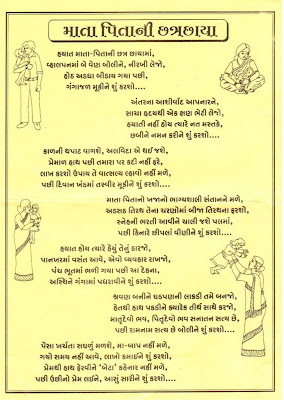 માતા પિતાની છત્રછાયા
હયાત માતા-પિતાની છત્ર છાયામાં,
વ્હાલપનમાં બે વેણ બોલીને, નીરખી લેજો,
હોઠ અડધા બીડાય ગયા પછી,
ગંગાજળ મૂકીને શું કરશો....
અંતરના આશીર્વાદ આપનારને,
સાચા હૃદયથી એક ક્ષણ ભેટી લેજો,
હયાતી નહીં હોય ત્યારે નત મસ્તકે,
છબીને નમન કરીને શું કરશો....
કાળની થપાટ વાગશે, અલવિદા એ થઈ જશે,
પ્રેમાળ હાથ પછી તમારા પર કદી નહીં ફરે,
લાખ કરશો ઉપાય તે વાત્સલ્ય લ્હાવો નહીં મળે,
પછી દિવાન ખંડમાં તસ્વીર મૂકીને શું કરશો....
માતા પિતાનો ખજાનો ભાગ્યશાળી સંતાનને મળે,
અડસઠ તિરથ તેના ચરણોમાં બીજા તિરથના ફરશો,
સ્નેહની ભરતી આવીને ચાલી જશે પલમાં,
પછી કિનારે છીપલાં વીણીને શું કરશો....
હયાત હોય ત્યારે હૈયું તેનું ઠારજો,
પાનખરમાં વસંત આવે, એવો વ્યવહાર રાખજો,
પંચ ભૂતમાં ભળી ગયા પછી આ દેહના,
અસ્થિને ગંગામાં પધરાવીને શું કરશો....
શ્રવણ બનીને ઘડપણની લાકડી તમે બનજો,
હેતથી હાથ પકડીને ક્યારેક તીર્થ સાથે ફરજો,
માતૃદેવો ભવ, પિતૃદેવો ભવ સનાતન સત્ય છે,
પછી રામનામ સત્ય છે બોલીને શું કરશો....
પૈસા ખર્ચતા સઘળું મળશે, મા-બાપ નહીં મળે,
ગયો સમય નહીં આવે, લાખો કમાઈને શું કરશો,
પ્રેમથી હાથ ફેરવીને 'બેટા' કહેનાર નહીં મળે,
પછી ઉછીનો પ્રેમ લઈને, આંસુ સારીને શું કરશો....